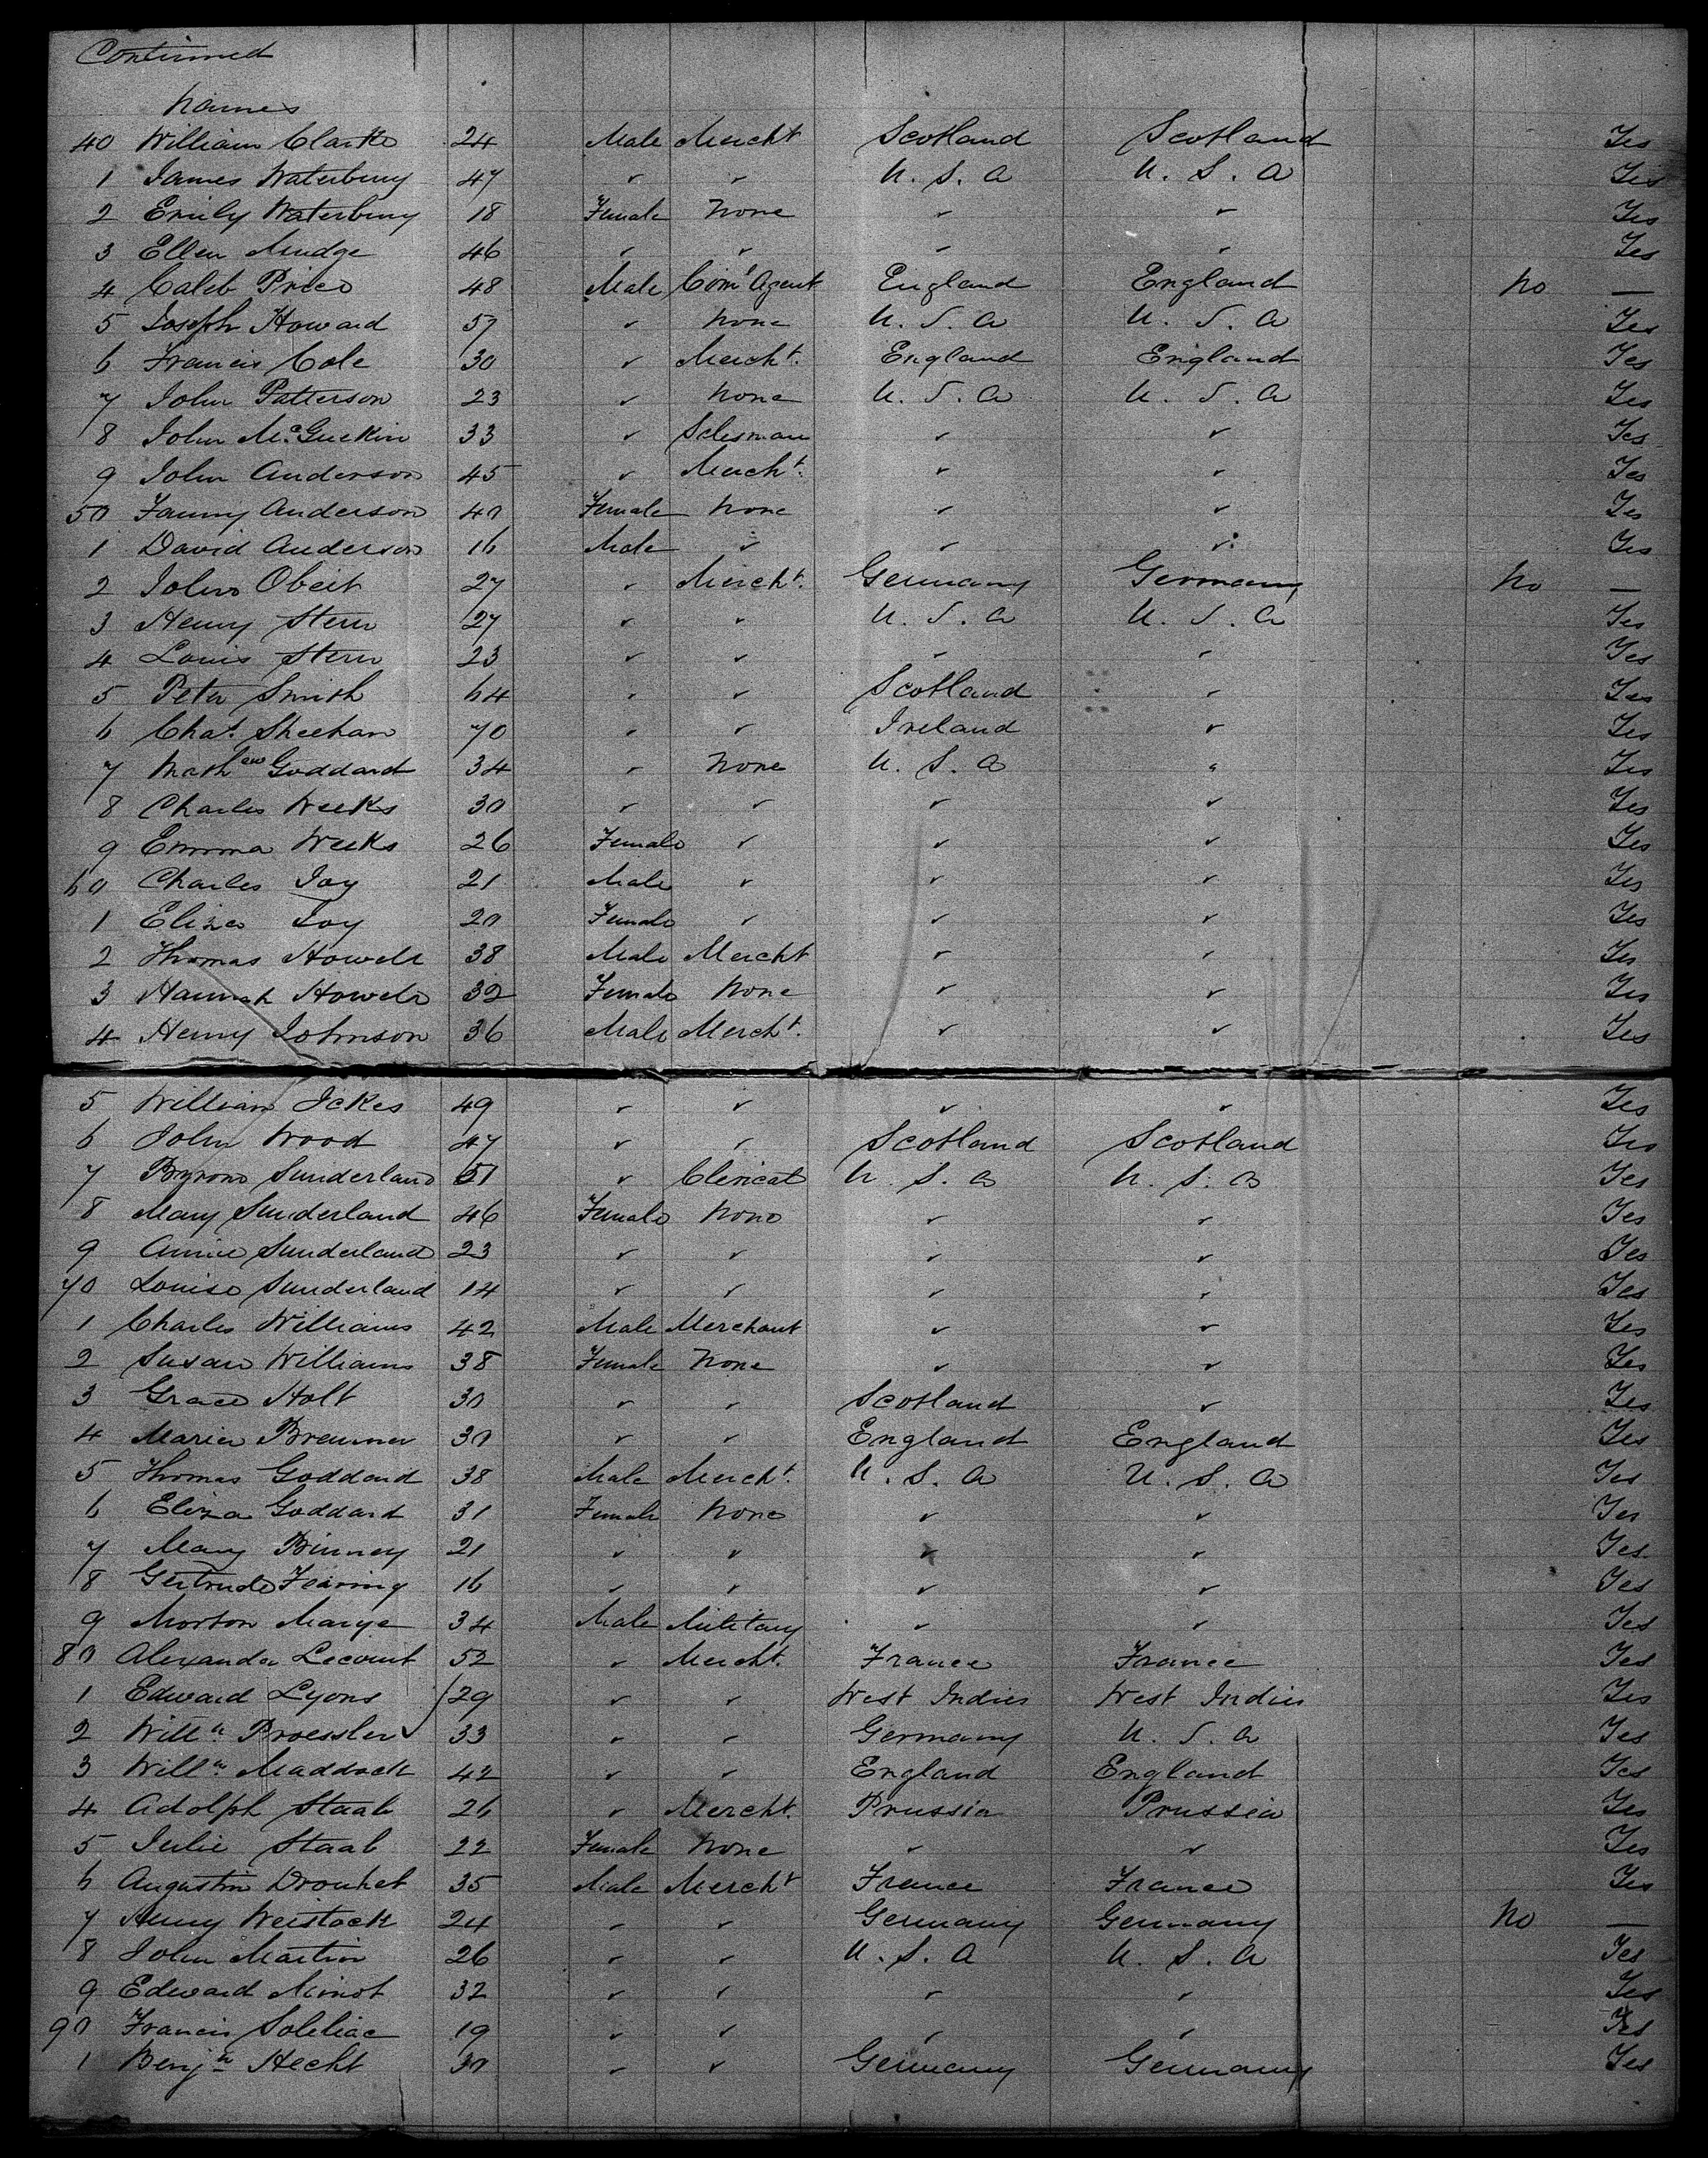 Continued
Names
40 William Clarke 24 Male Mercht Scotland Scotland Yes
1 James Waterbury 47 " " U. S. A U. S. A Yes
2 Emily Waterbury 18 Female None " " Yes
3 Ellen Mudge 46 " " " " Yes
4 Caleb Price 48 Male Coml Agent England England No —
5 Joseph Howard 57 " None U. S. A U. S. A Yes
6 Francis Cole 30 " Mercht. England England Yes
7 John Patterson 23 " None U. S. A U. S. A Yes
8 John McGuckin 33 " Salesman " " Yes
9 John Anderson 45 " Mercht. " " Yes
50 Fanny Anderson 40 Female None " " Yes
1 David Anderson 16 Male " " " Yes
2 Johns Obeit 27 " Mercht. Germany Germany No —
3 Henry Stern 27 " " U. S. A U. S. A Yes
4 Louis Stern 23 " " " " Yes
5 Peter Smith 64 " " Scotland " Yes
6 Chas. Sheehan 70 " " Ireland " Yes
7 Mathew Goddard 34 " None U. S. A " Yes
8 Charles Weeks 30 " " " " Yes
9 Emma Weeks 26 Female " " " Yes
60 Charles Joy 21 Male " " " Yes
1 Eliza Joy 20 Female " " " Yes
2 Thomas Howell 38 Male Mercht " " Yes
3 Hannah Howell 32 Female None " " Yes
4 Henry Johnson 36 Male Mercht. " " Yes
5 William Ickes 49 " " " " Yes
6 John Wood 47 " " Scotland Scotland Yes
7 Byron Sunderland 51 " Clerical U. S. A U. S. A Yes
8 Mary Sunderland 46 Female None " " Yes
9 Annie Sunderland 23 " " " " Yes
70 Louise Sunderland 14 " " " " Yes
1 Charles Williams 42 Male Merchant " " Yes
2 Susan Williams 38 Female None " " Yes
3 Grace Holt 30 " " Scotland " Yes
4 Maria Bremner 30 " " England England Yes
5 Thomas Goddard 38 Male Mercht. U. S. A U. S. A Yes
6 Eliza Goddard 31 Female None " " Yes
7 Mary Binney 21 " " " " Yes
8 Gertrude Fearing 16 " " " " Yes
9 Morton Marye 34 Male Military " " Yes
80 Alexander Lecount 52 " Mercht. France France Yes
1 Edward Lyons 29 " " West Indies West Indies Yes
2 Willm Proessler 33 " " Germany U. S. A Yes
3 Willm Maddock 42 " " England England Yes
4 Adolph Staab 26 " Mercht. Prussia Prussia Yes
5 Julie Staab 22 Female None " " Yes
6 Augustin Drouhet 35 Male Mercht France France Yes
7 Henry Weistock 24 " " Germany Germany No —
8 John Martin 26 " " U. S. A U. S. A Yes
9 Edward Minot 32 " " " " Yes
90 Francis Soleliac 19 " " " " Yes
1 Benjn Hecht 30 " " Germany Germany Yes